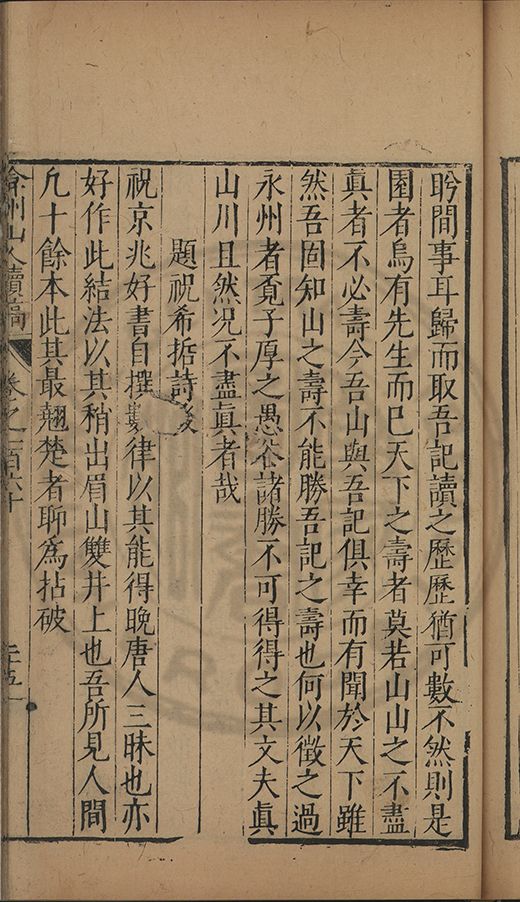 盻間事耳歸而取吾記讀之歷歷猶可數不然則是
園者烏有先生而已天下之壽者莫若山山之不盡
眞者不必壽今吾山與吾記俱幸而有聞於天下雖
然吾固知山之壽不能勝吾記之壽也何以徵之過
永州者覔子厚之愚谷諸勝不可得得之其文夫眞
山川且然况不盡眞者哉
題祝希哲詩後
祝京兆好書自撰數律以其能得晚唐人三昧也亦
好作此結法以其稍出眉山雙井上也吾所見人間
凡十餘本此其最翹楚者聊爲拈破
弇州山人續稿 卷之一百六十 二十五